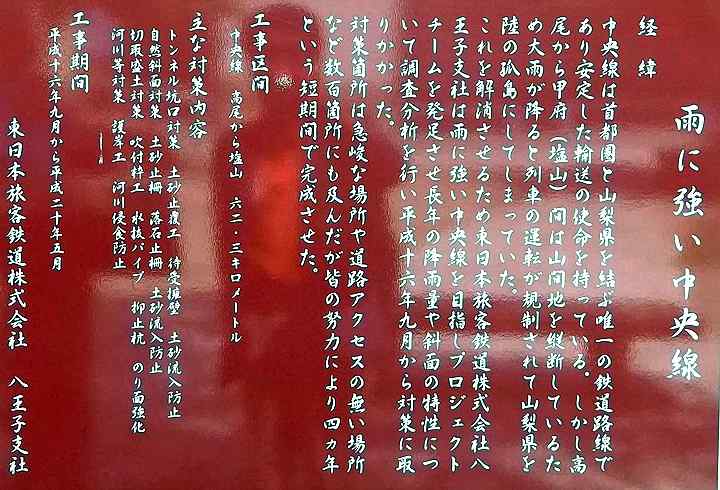 雨に強い中央線
経緯
中央線は首都圏と山梨県を結ぶ唯一の鉄道路線で
あり安定した輸送の使命を持っている。しかし高
尾から甲府(塩山)間は山間地を縦断しているた
め大雨が降ると列車の運転が規制されて山梨県を
陸の孤島にしてしまっていた。
これを解消させるため東日本旅客鉄道株式会社八
王子支社は雨に強い中央線を目指しプロジェクト
チームを発足させ長年の降雨量や斜面の特性につ
いて調査分析を行い平成十六年九月から対策に取
りかかった。
対策箇所は急峻な場所や道路アクセスの無い場所
など数百箇所にも及んだが皆の努力により四カ年
という短期間で完成させた。
工事区間
中央線 高尾から塩山 六二・三キロメートル
主な対策内容
トンネル坑口対策 土砂止覆工 待受擁壁 土砂流入防止
自然斜面対策 土砂止柵 落石止柵 土砂流入防止
切取盛土対策 吹付枠工 水抜パイプ 抑止杭 のり面強化
河川等対策 護岸工 河川侵食防止
工事期間
平成十六年九月から平成二十年五月
東日本旅客鉄道株式会社 八王子支社